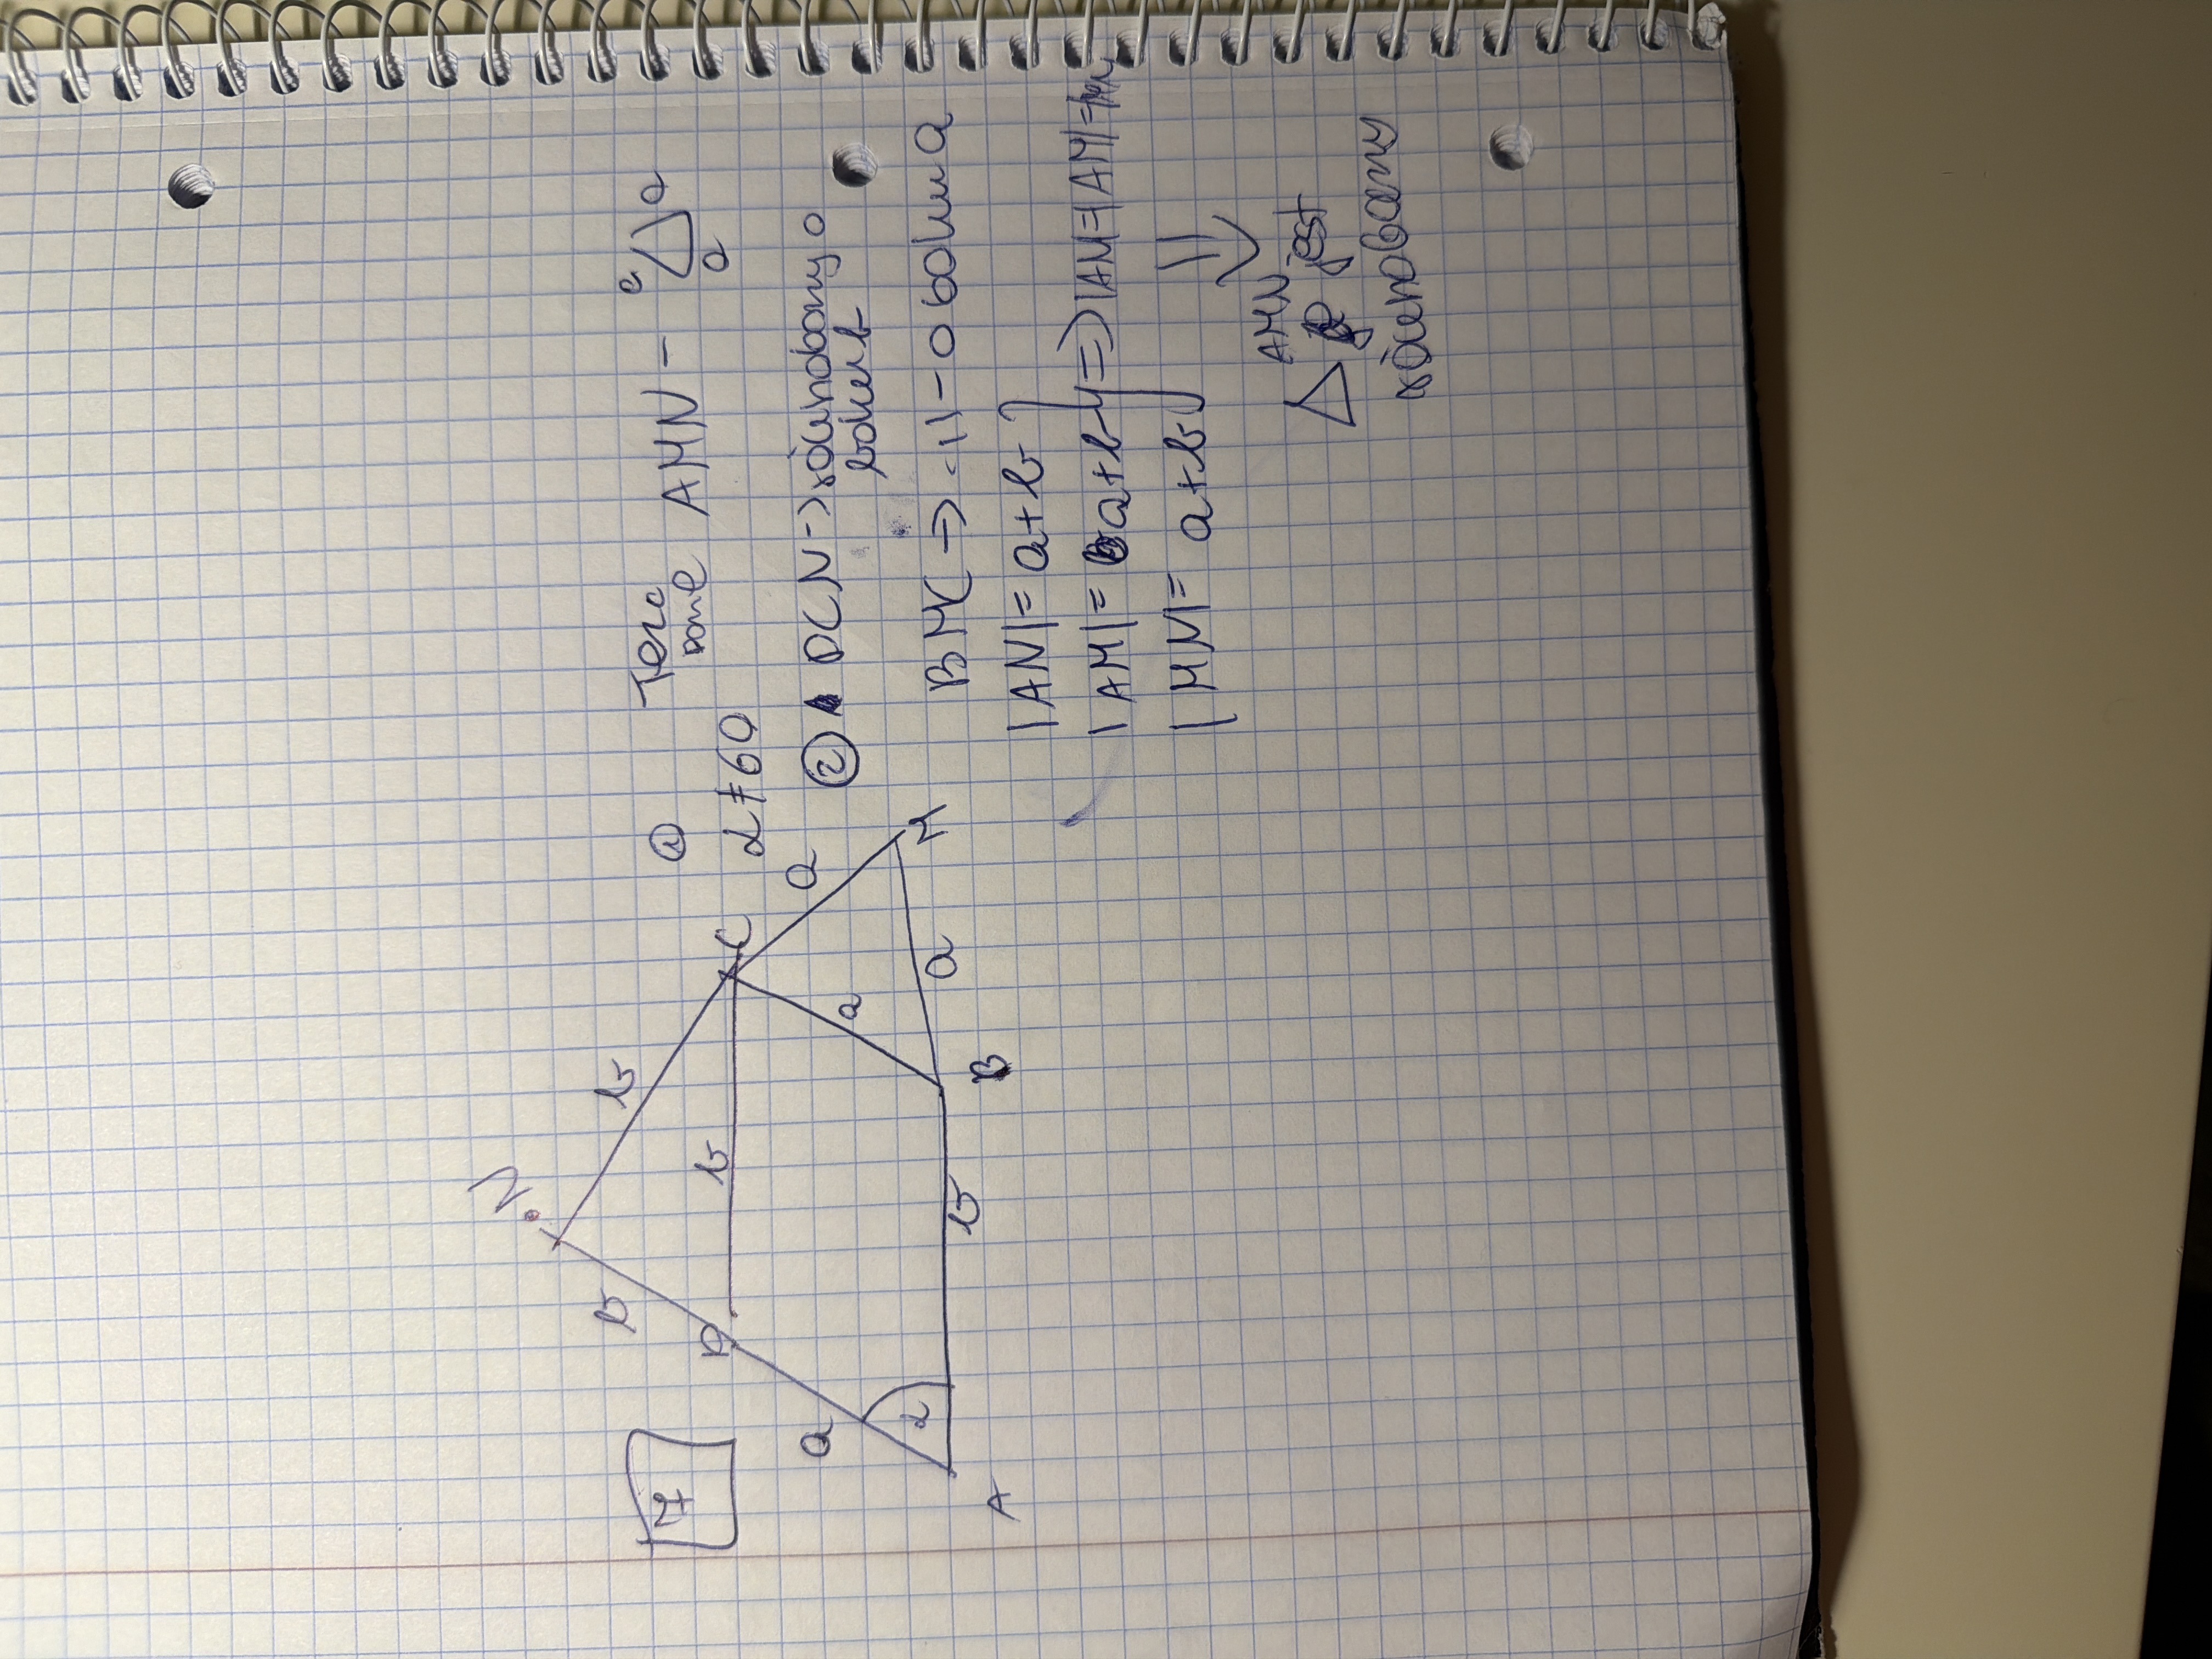 7
N
b
b
D
b
C
a
a
a
α
A
b
B
a
M
①
Teza
AMN - a a a
α ≠ 60
② DCN -> równoboczny o
boku b
BMC -> -||- o boku a
|AN| = a+b
|AM| = a+b
|MN| = a+b
AMN
jest
równoboczny